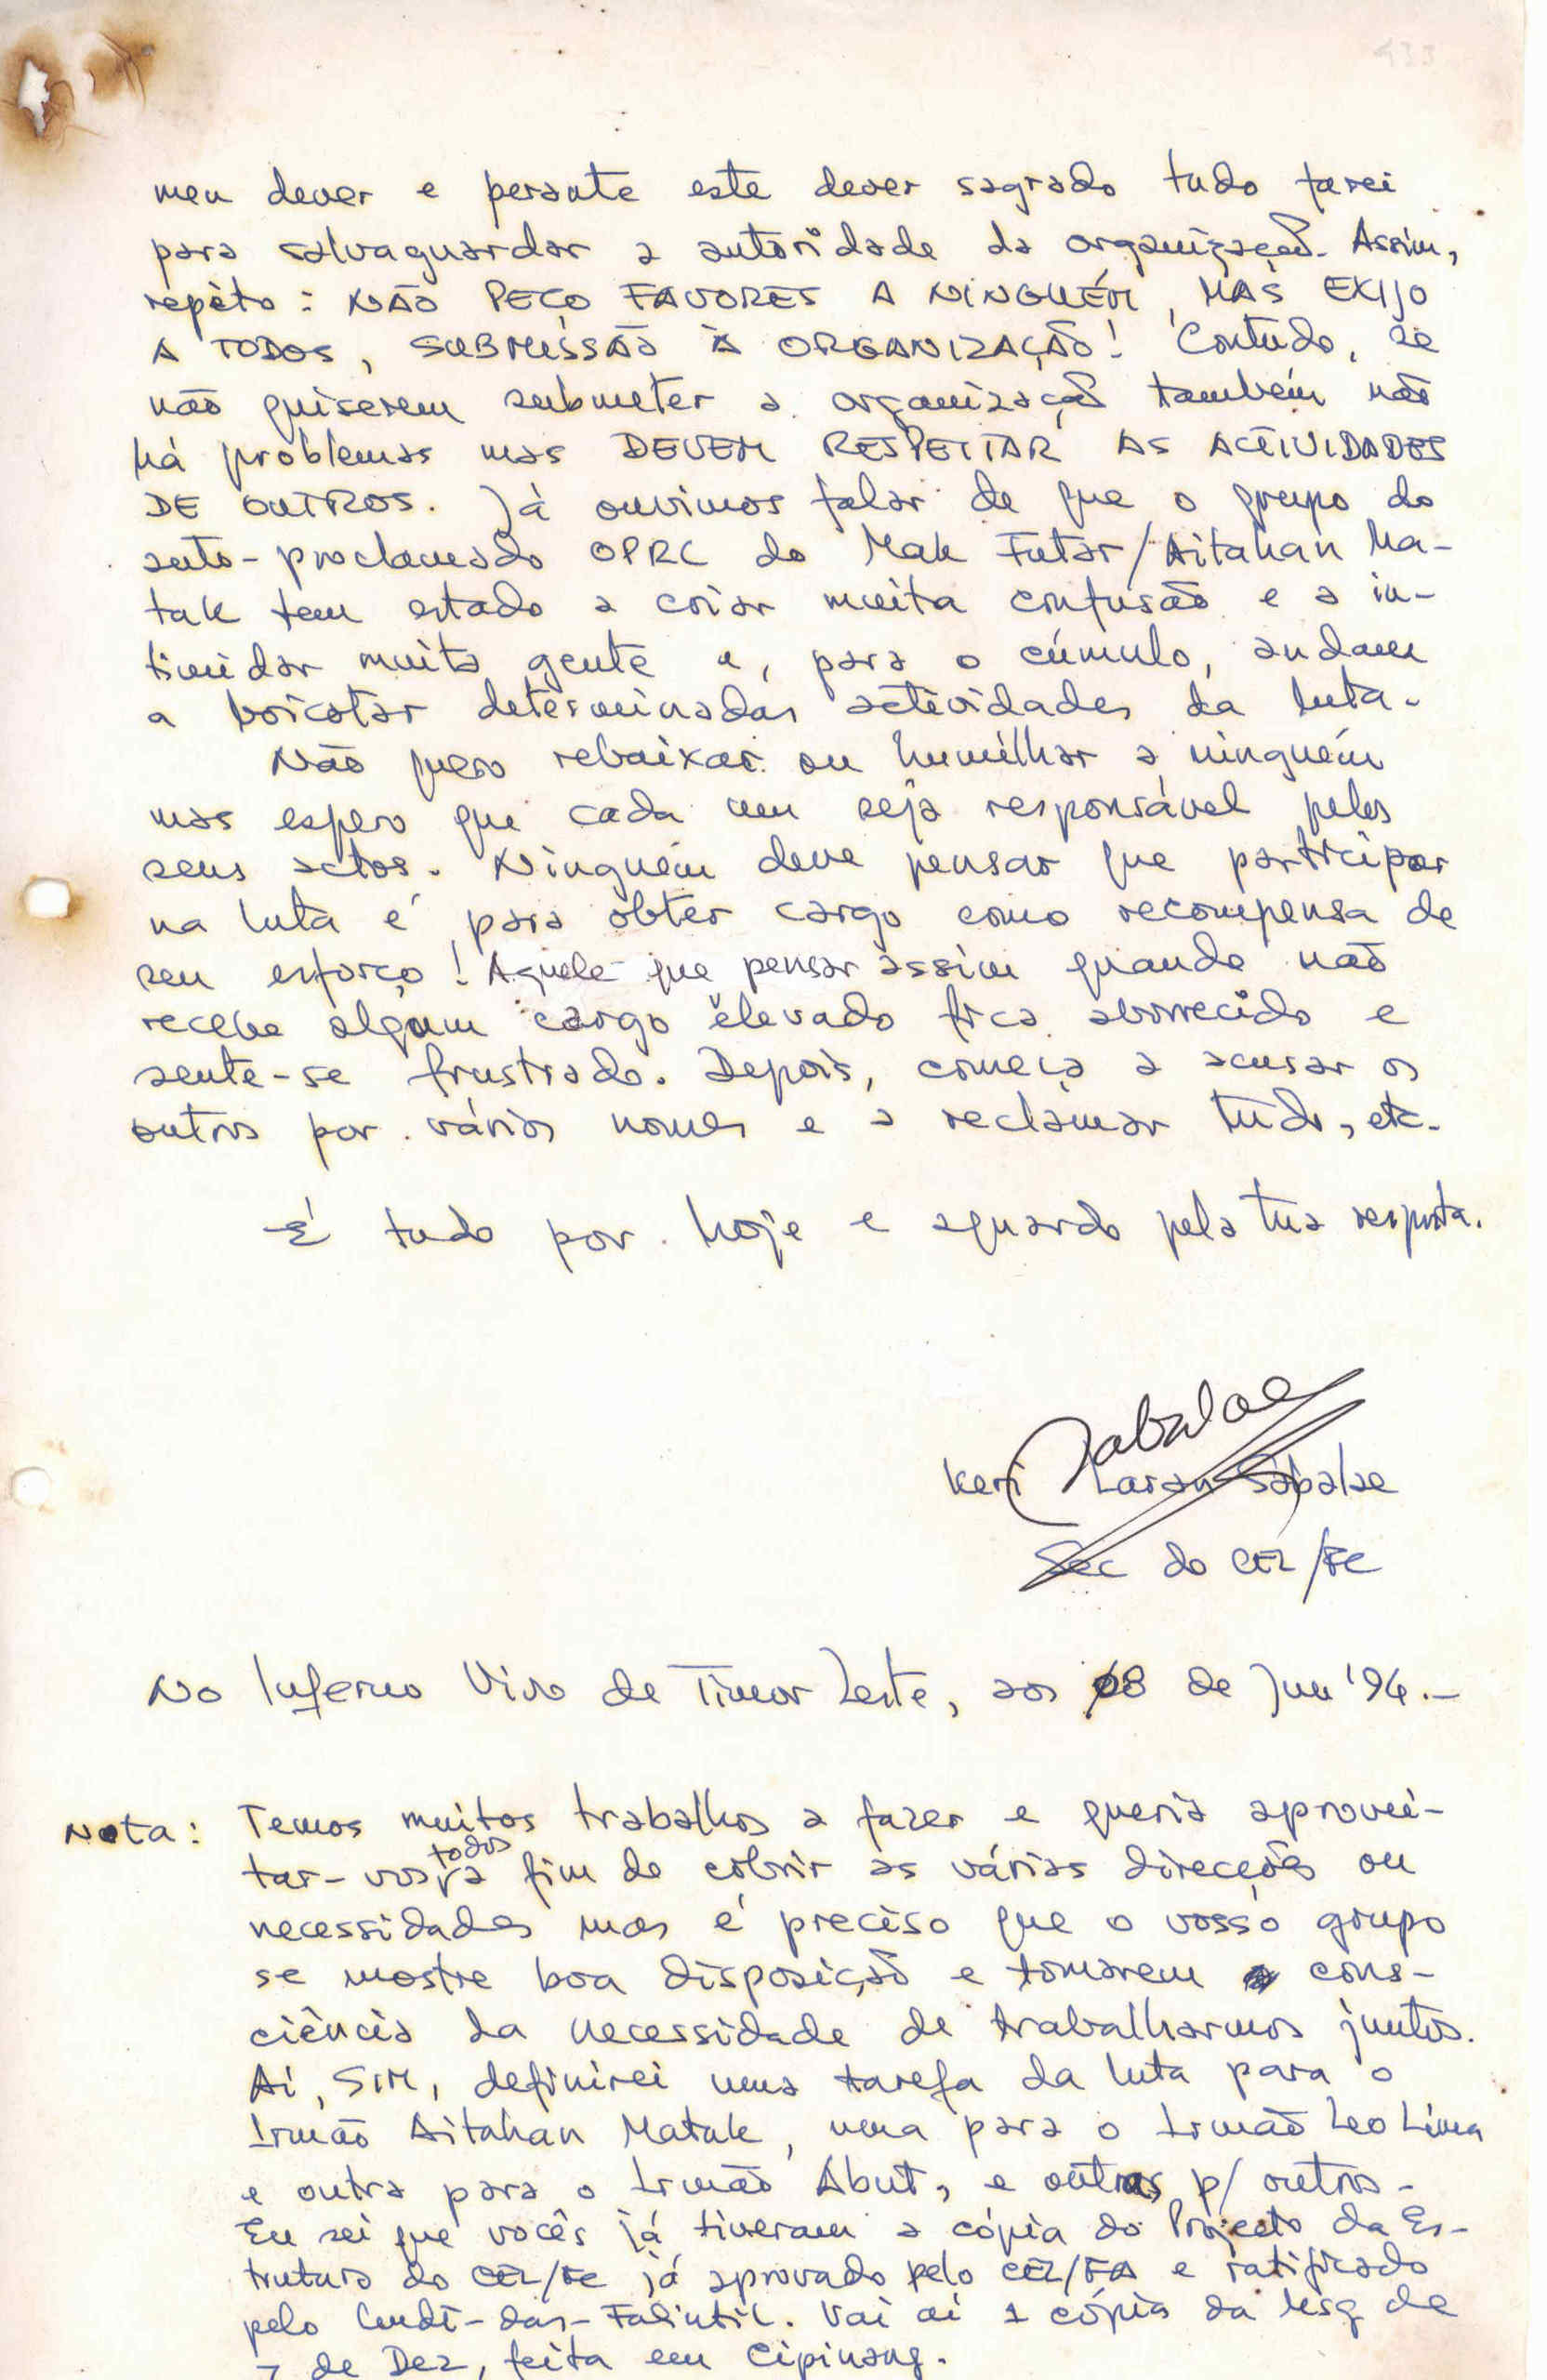 433
meu dever e perante este dever sagrado tudo farei
para salvaguardar a autoridade da organização. Assim,
repèto: NÃO PEÇO FAVORES A NINGUÉM, MAS EXIJO
A TODOS, SUBMISSÃO À ORGANIZAÇÃO! Contudo, se
não quiserem submeter a organização também não
há problemas mas DEVEM RESPEITAR AS ACTIVIDADES
DE OUTROS. Já ouvimos falar de que o grupo do
auto-proclamado OPRC do Mak Futar/Aitahan Ma-
tak tem estado a criar muita confusão e a in-
timidar muita gente e, para o cúmulo, andam
a boicotar determinadas actividades da luta.
Não quero rebaixar ou humilhar a ninguém
mas espero que cada um seja responsável pelos
seus actos. Ninguém deve pensar que participar
na luta é para obter cargo como recompensa de
seu esforço! Aquele que pensar assim quando não
recebe algum cargo elevado fica aborrecido e
sente-se frustrado. Depois, começa a acusar os
outros por vários nomes e a reclamar tudo, etc.
É tudo por hoje e aguardo pela tua resposta.
Sabalae
Keri Laran Sabalae
Sec do CEL/FC
No Inferno Vivo de Timor Leste, aos 08 de Jun '94.-
Nota: Temos muitos trabalhos a fazer e queria aprovei-
tar-vos todos a fim de cobrir as várias direcções ou
necessidades mas é preciso que o vosso grupo
se mostre boa disposição e tomarem cons-
ciência da necessidade de trabalharmos juntos.
Aí, SIM, definirei uma tarefa da luta para o
Irmão Aitahan Matak, uma para o Irmão Leo Lima
e outra para o Irmão Abut, e outras p/ outros.
Eu sei que vocês já tiveram a cópia do Projecto da Es-
trutura do CEL/FC já aprovado pelo CEL/FA e ratificado
pelo Cmdt-das-Falintil. Vai aí 1 cópia da Msg de
7 de Dez, feita em Cipinang.